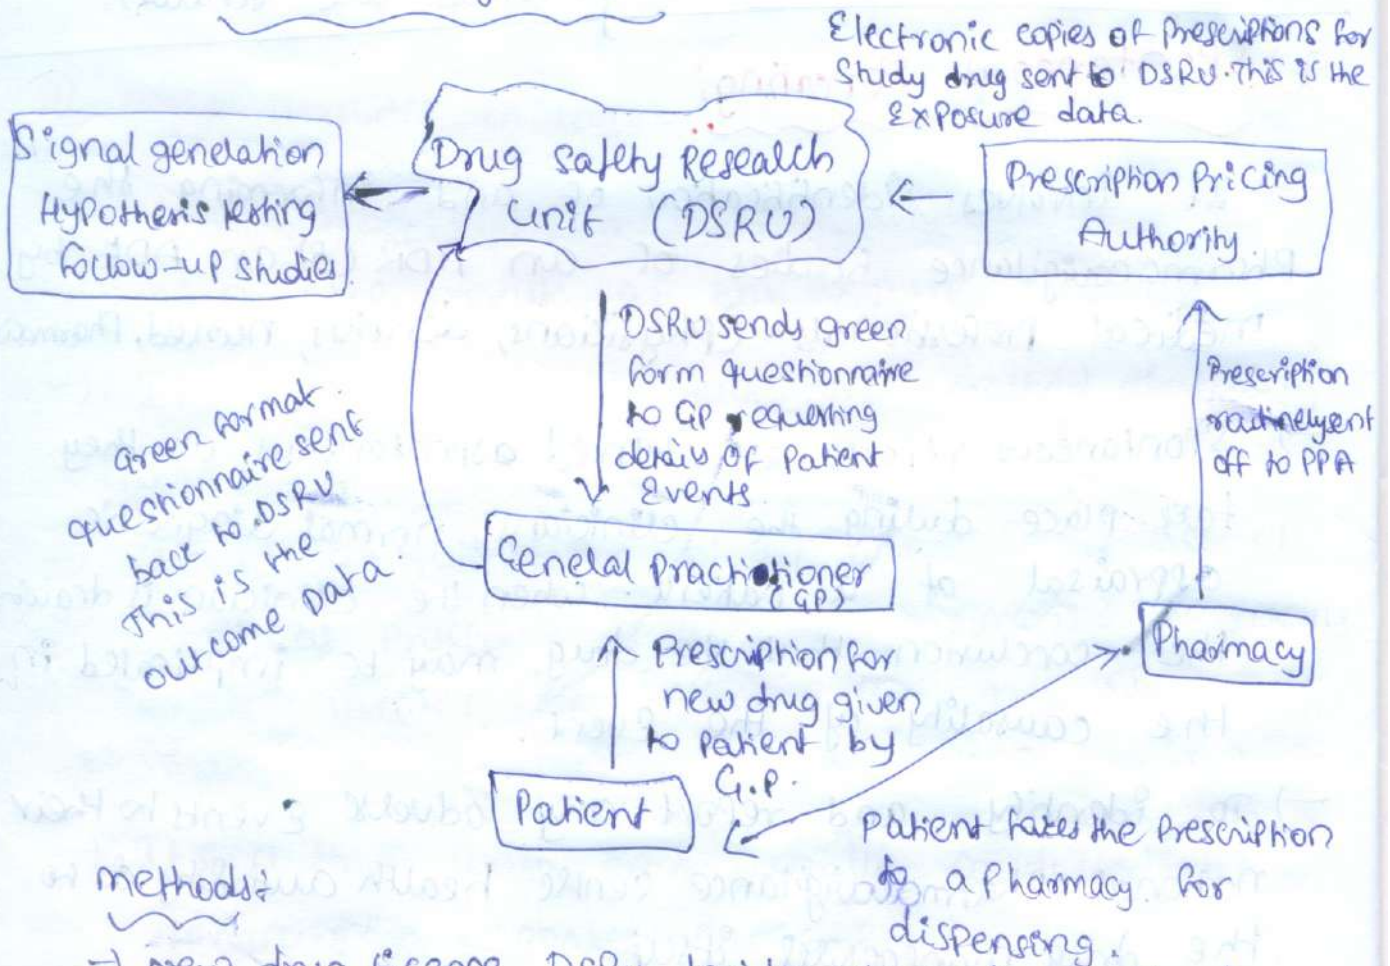 Electronic copies of Prescriptions for
Study drug sent to DSRU. This is the
Exposure data.
Signal generation
Hypothesis testing
follow-up studies
Drug safety Research
unit (DSRU)
Prescription Pricing
Authority.
DSRU sends green
form questionnaire
to GP requesting
details of Patient
Events.
Prescription
routinely sent
off to PPA
Green format
questionnaire sent
back to DSRU
This is the
out come Data.
General Practitioner
(GP)
Pharmacy
Prescription for
new drug given
to Patient by
G.P.
Patient
Patient takes the Prescription
to a Pharmacy for
dispensing.
methods:
→ new drug DSRU